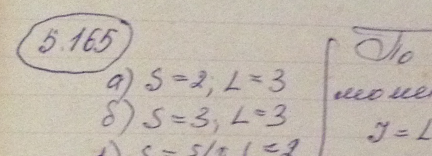 5.165
а) S = 2; L = 3
б) S = 3; L = 3
По
J = L